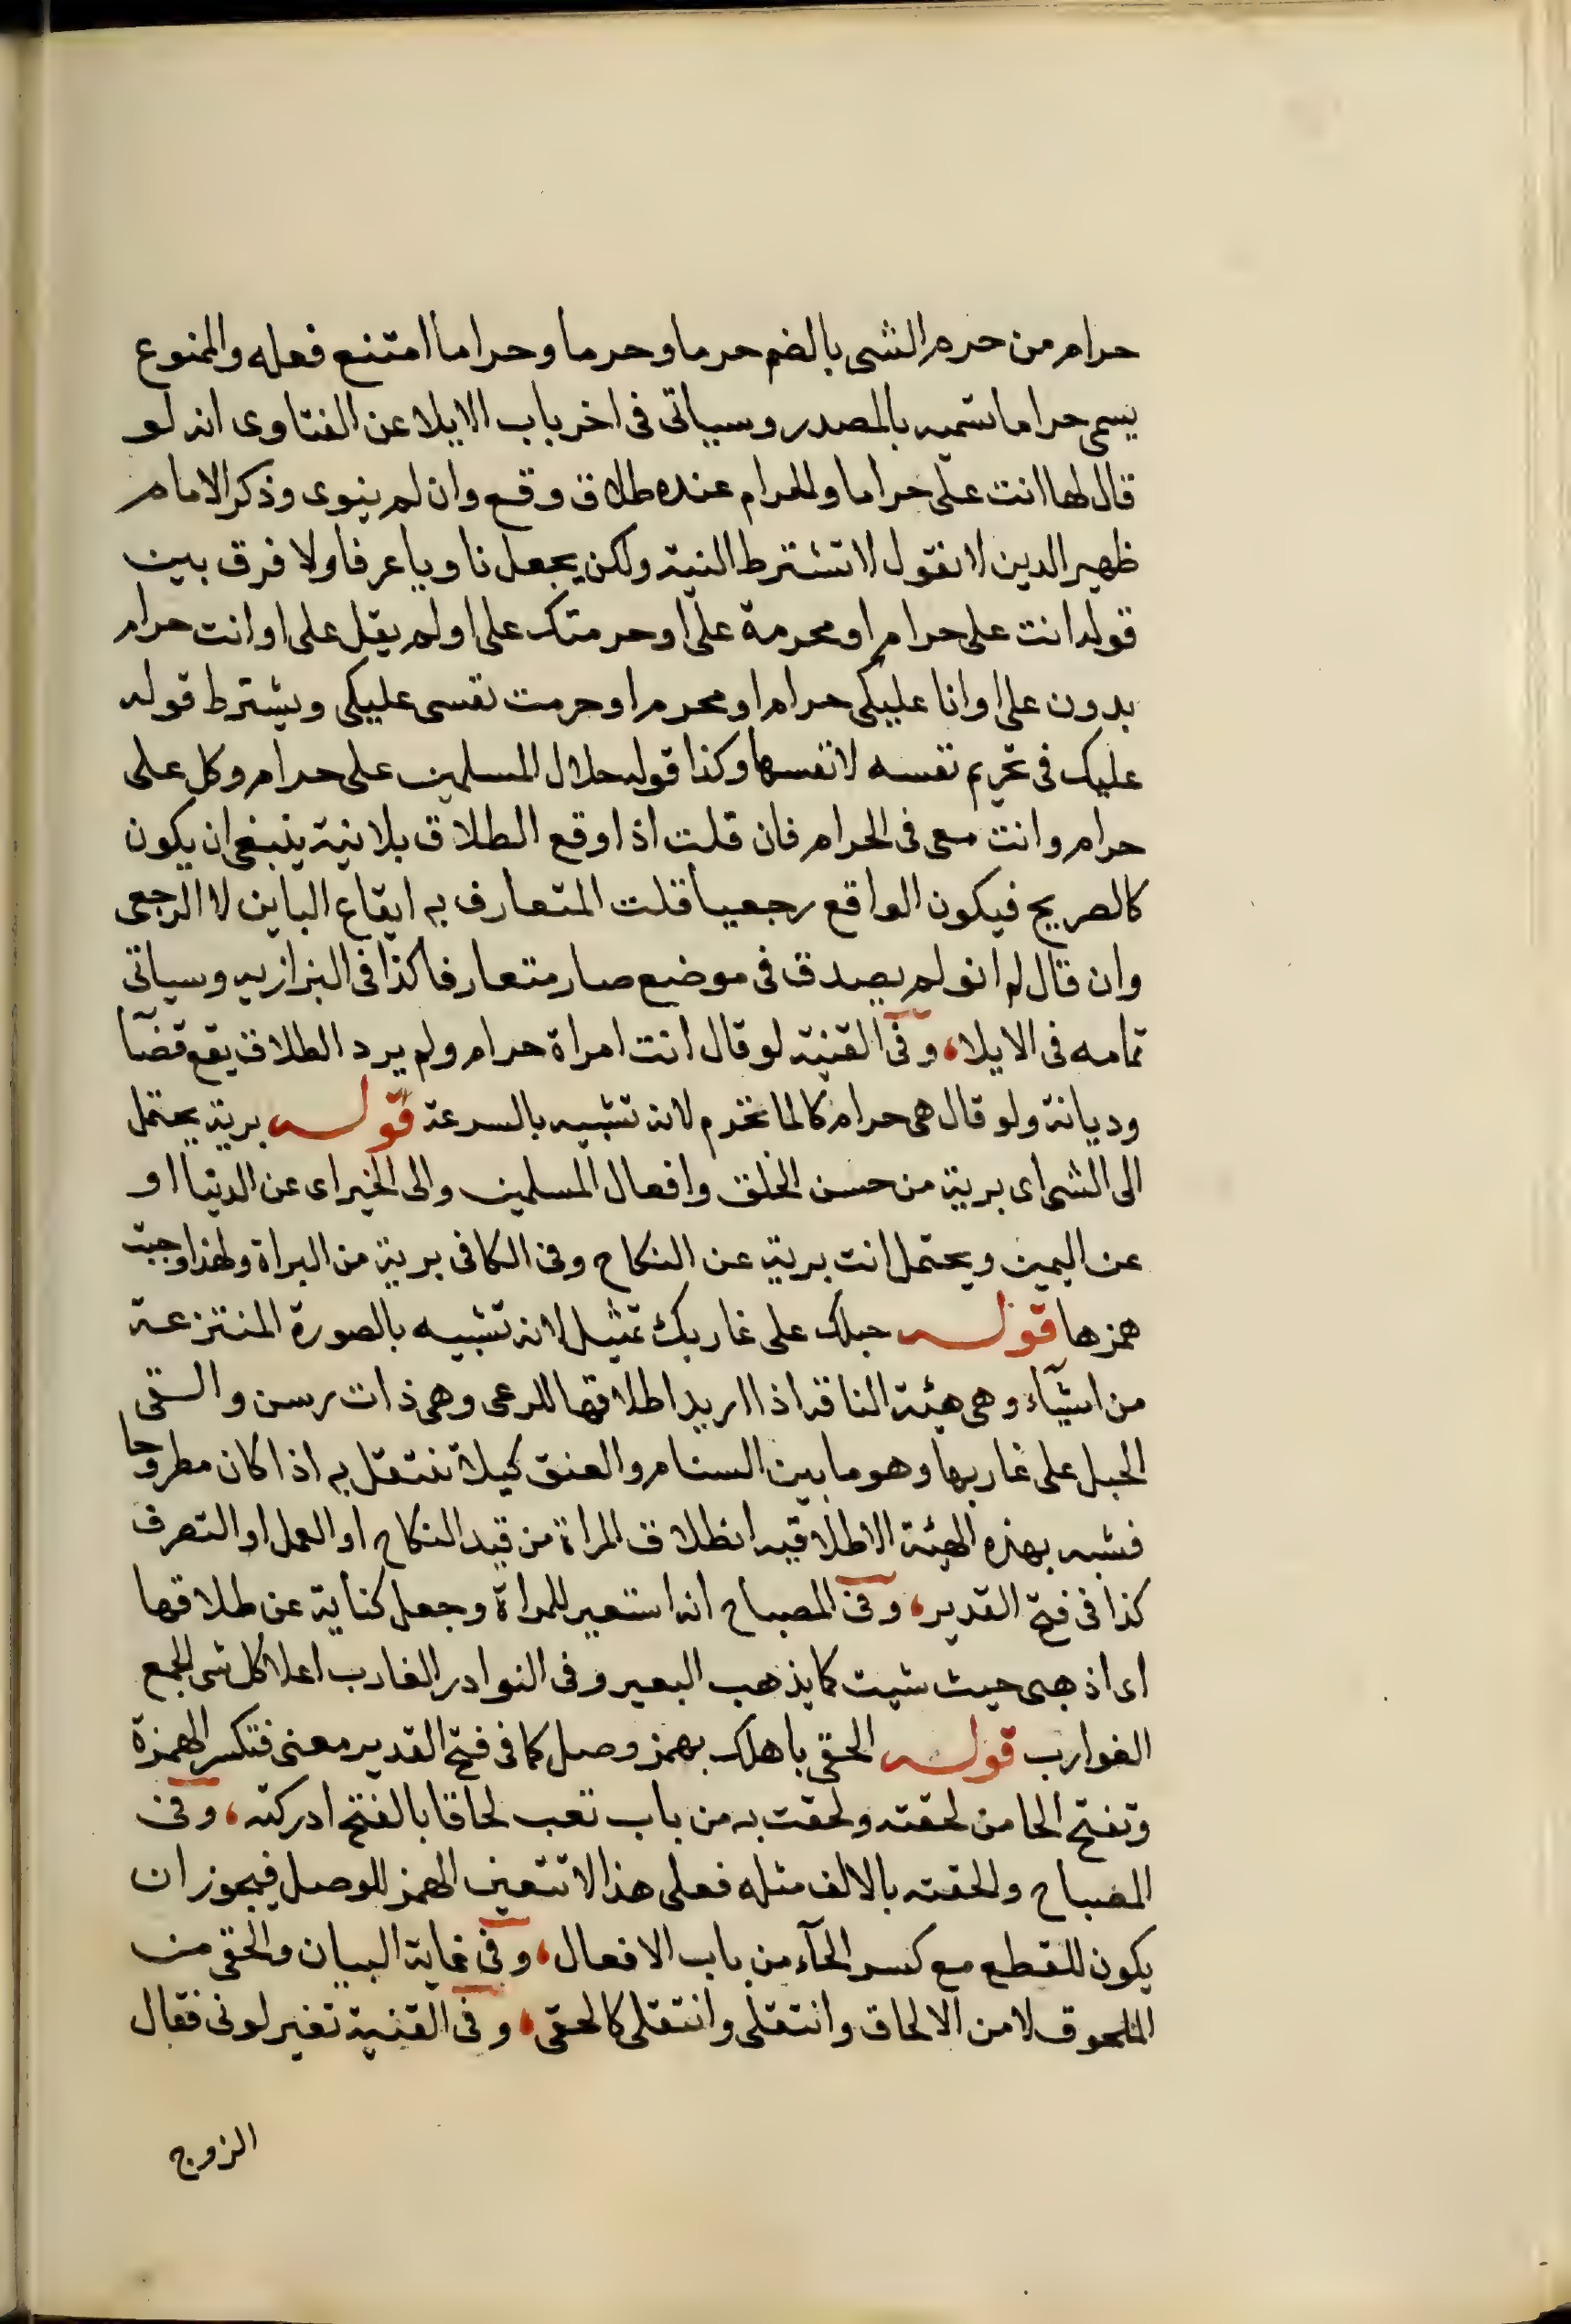 حرام من حرم الشى بالضم حرما وحرما وحراما امتنع فعله والممنوع
يسمى حراما تسميه بالمصدر وسياتى فى اخر باب الايلا عن الفتاوى انه لو
قال لها انت على حراما والحرام عنده طلاق وقع وان لم ينوى وذكر الامام
ظهير الدين لا نقول لا تشترط النية ولكن يجعل ناويا عرفا ولا فرق بين
قوله انت على حرام او محرمة على او حرمتك على او لم يقل على او انت حرام
بدون على او انا عليكى حرام او محرم او حرمت نفسى عليكى ويشترط قوله
عليك فى تحريم نفسه لا نفسها وكذا قوله حلال المسلمين على حرام وكل على
حرام وانت معى فى الحرام فان قلت اذا وقع الطلاق بلا نية ينبغى ان يكون
كالصريح فيكون الواقع رجعيا قلت المتعارف به ايقاع الباين لا الرجعى
وان قال لم انو لم يصدق فى موضع صار متعارفا كذا فى البزازيه وسياتى
تمامه فى الايلاء، وفى القنية لو قال انت امراة حرام ولم يرد الطلاق يقع قضآ
وديانة ولو قال هى حرام كالما تحرم لانه تشبيه بالسرعة قوله برية يحتمل
الى الشر اى برية من حسن الخلق وافعال المسلمين والى الخير اى عن الدنيا او
عن اليمين ويحتمل انت برية عن النكاح وفى الكافى برية من البراة ولهذا وجبت
همزها قوله حبلك على غاربك تمثيل لانه تشبيه بالصورة المنتزعة
من اشيآء وهى هيئة الناقة اذا اريد اطلاقها للرعى وهى ذات رسن والقى
الحبل على غاربها وهو ما بين السنام والعنق كيلا تنتقل به اذا كان مطروحا
فشبه بهذه الهئة الاطلاقيه انطلاق المراة من قيد النكاح او العمل او التصرف
كذا فى فتح القدير، وفى المصباح انه استعير للمراة وجعل كناية عن طلاقها
اى اذهبى حيث شيت كما يذهب البعير وفى النوادر الغارب اعلا كل شى الجمع
الغوارب قوله الحقى باهلك بهمز وصل كما فى فتح القدير معنى فتكسر الهمزة
وتفتح الحا من لحقته ولحقت به من باب تعب لحاقا بالفتح ادركته، وفى
المصباح والحقته بالالف مثله فعلى هذا لا تتعين الهمز للوصل فيجوز ان
يكون للقطع مع كسر الحآء من باب الافعال، وفى غاية البيان والحقى من
اللحوق لا من الالحاق وانتقلى وانتقلى كالحقى، وفى القنية تغير لونى فقال
الزوج